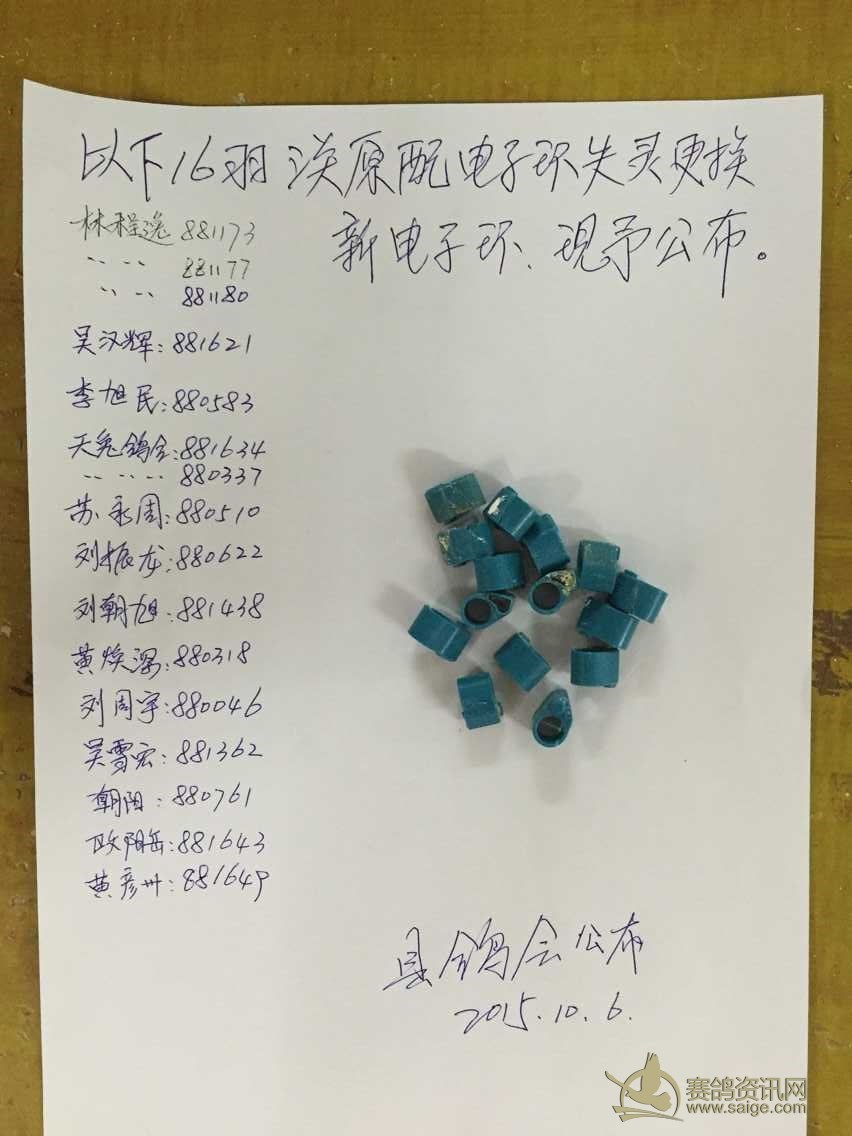 以下16羽送原配电子环失灵更换
新电子环、现予公布。
林程逸 881173
〃 〃 881177
〃 〃 881180
吴汉辉:881621
李旭民:880583
天兔鸽舍:881634
〃 〃 〃 880337
苏永周:880510
刘振龙:880622
刘朝旭:881438
黄焕:880318
刘周宇:880046
吴雪宏:881362
朝阳:880761
欧阳岳:881643
黄彦州:881649
县鸽会公布
2015.10.6.
赛鸽资讯网
www.saige.com